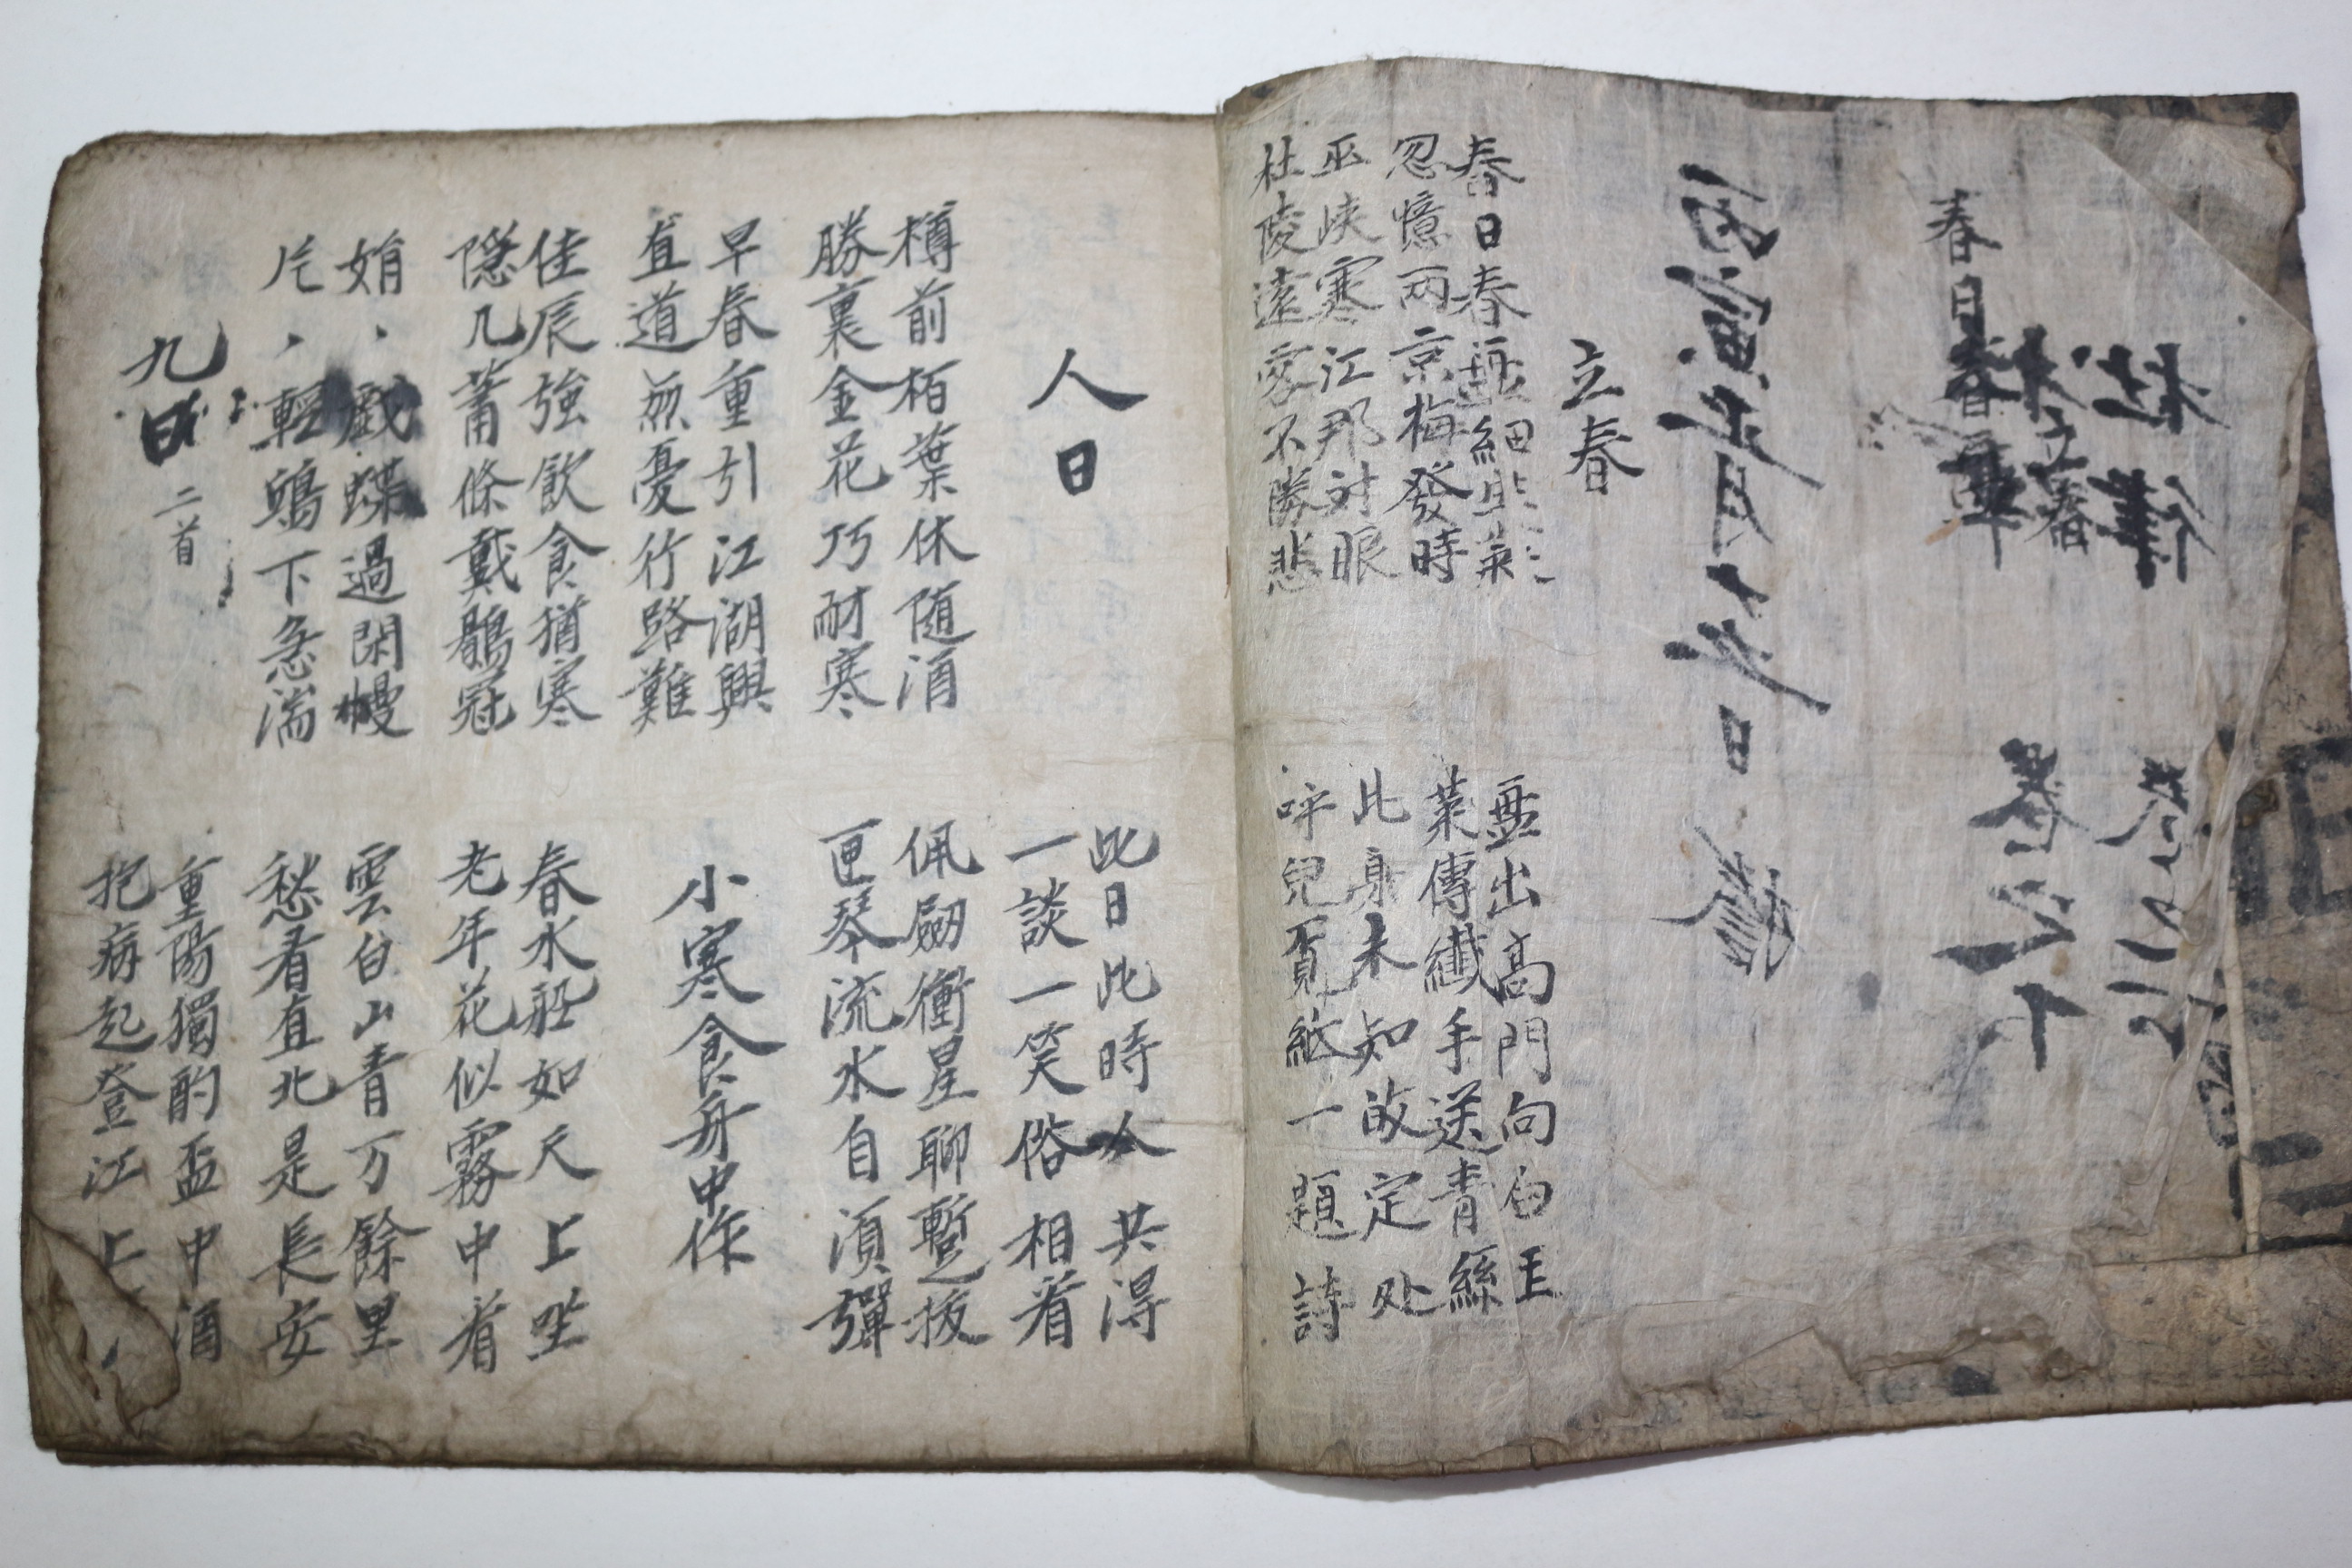 杜律
立春
春日春
立春
春日春盤細生菜
忽憶兩京梅發時
盤出高門句白玉
菜傳纖手送青絲
巫峽寒江那対眼
杜陵遠客不勝悲
此身未知故定处
呼兒覓紙一題詩
人日
此日此時人共得
一談一笑俗相看
樽前栢葉休随酒
勝裏金花巧耐寒
佩劔衝星聊蹔拔
匣琴流水自湏彈
早春重引江湖興
直道無憂行路難
小寒食舟中作
佳辰強飲食猶寒
隱几蕭條戴鶡冠
春水船如天上坐
老年花似霧中看
娟、戱蝶過閑幔
片、輕鷗下急湍
雲白山青万餘里
愁看直北是長安
九日 二首
重陽獨酌盃中酒
抱病起登江上